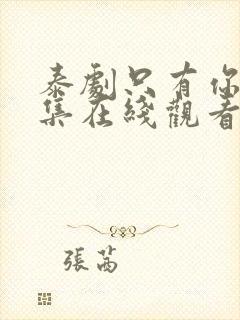 泰劇只有你
集在綫觀看
張茜